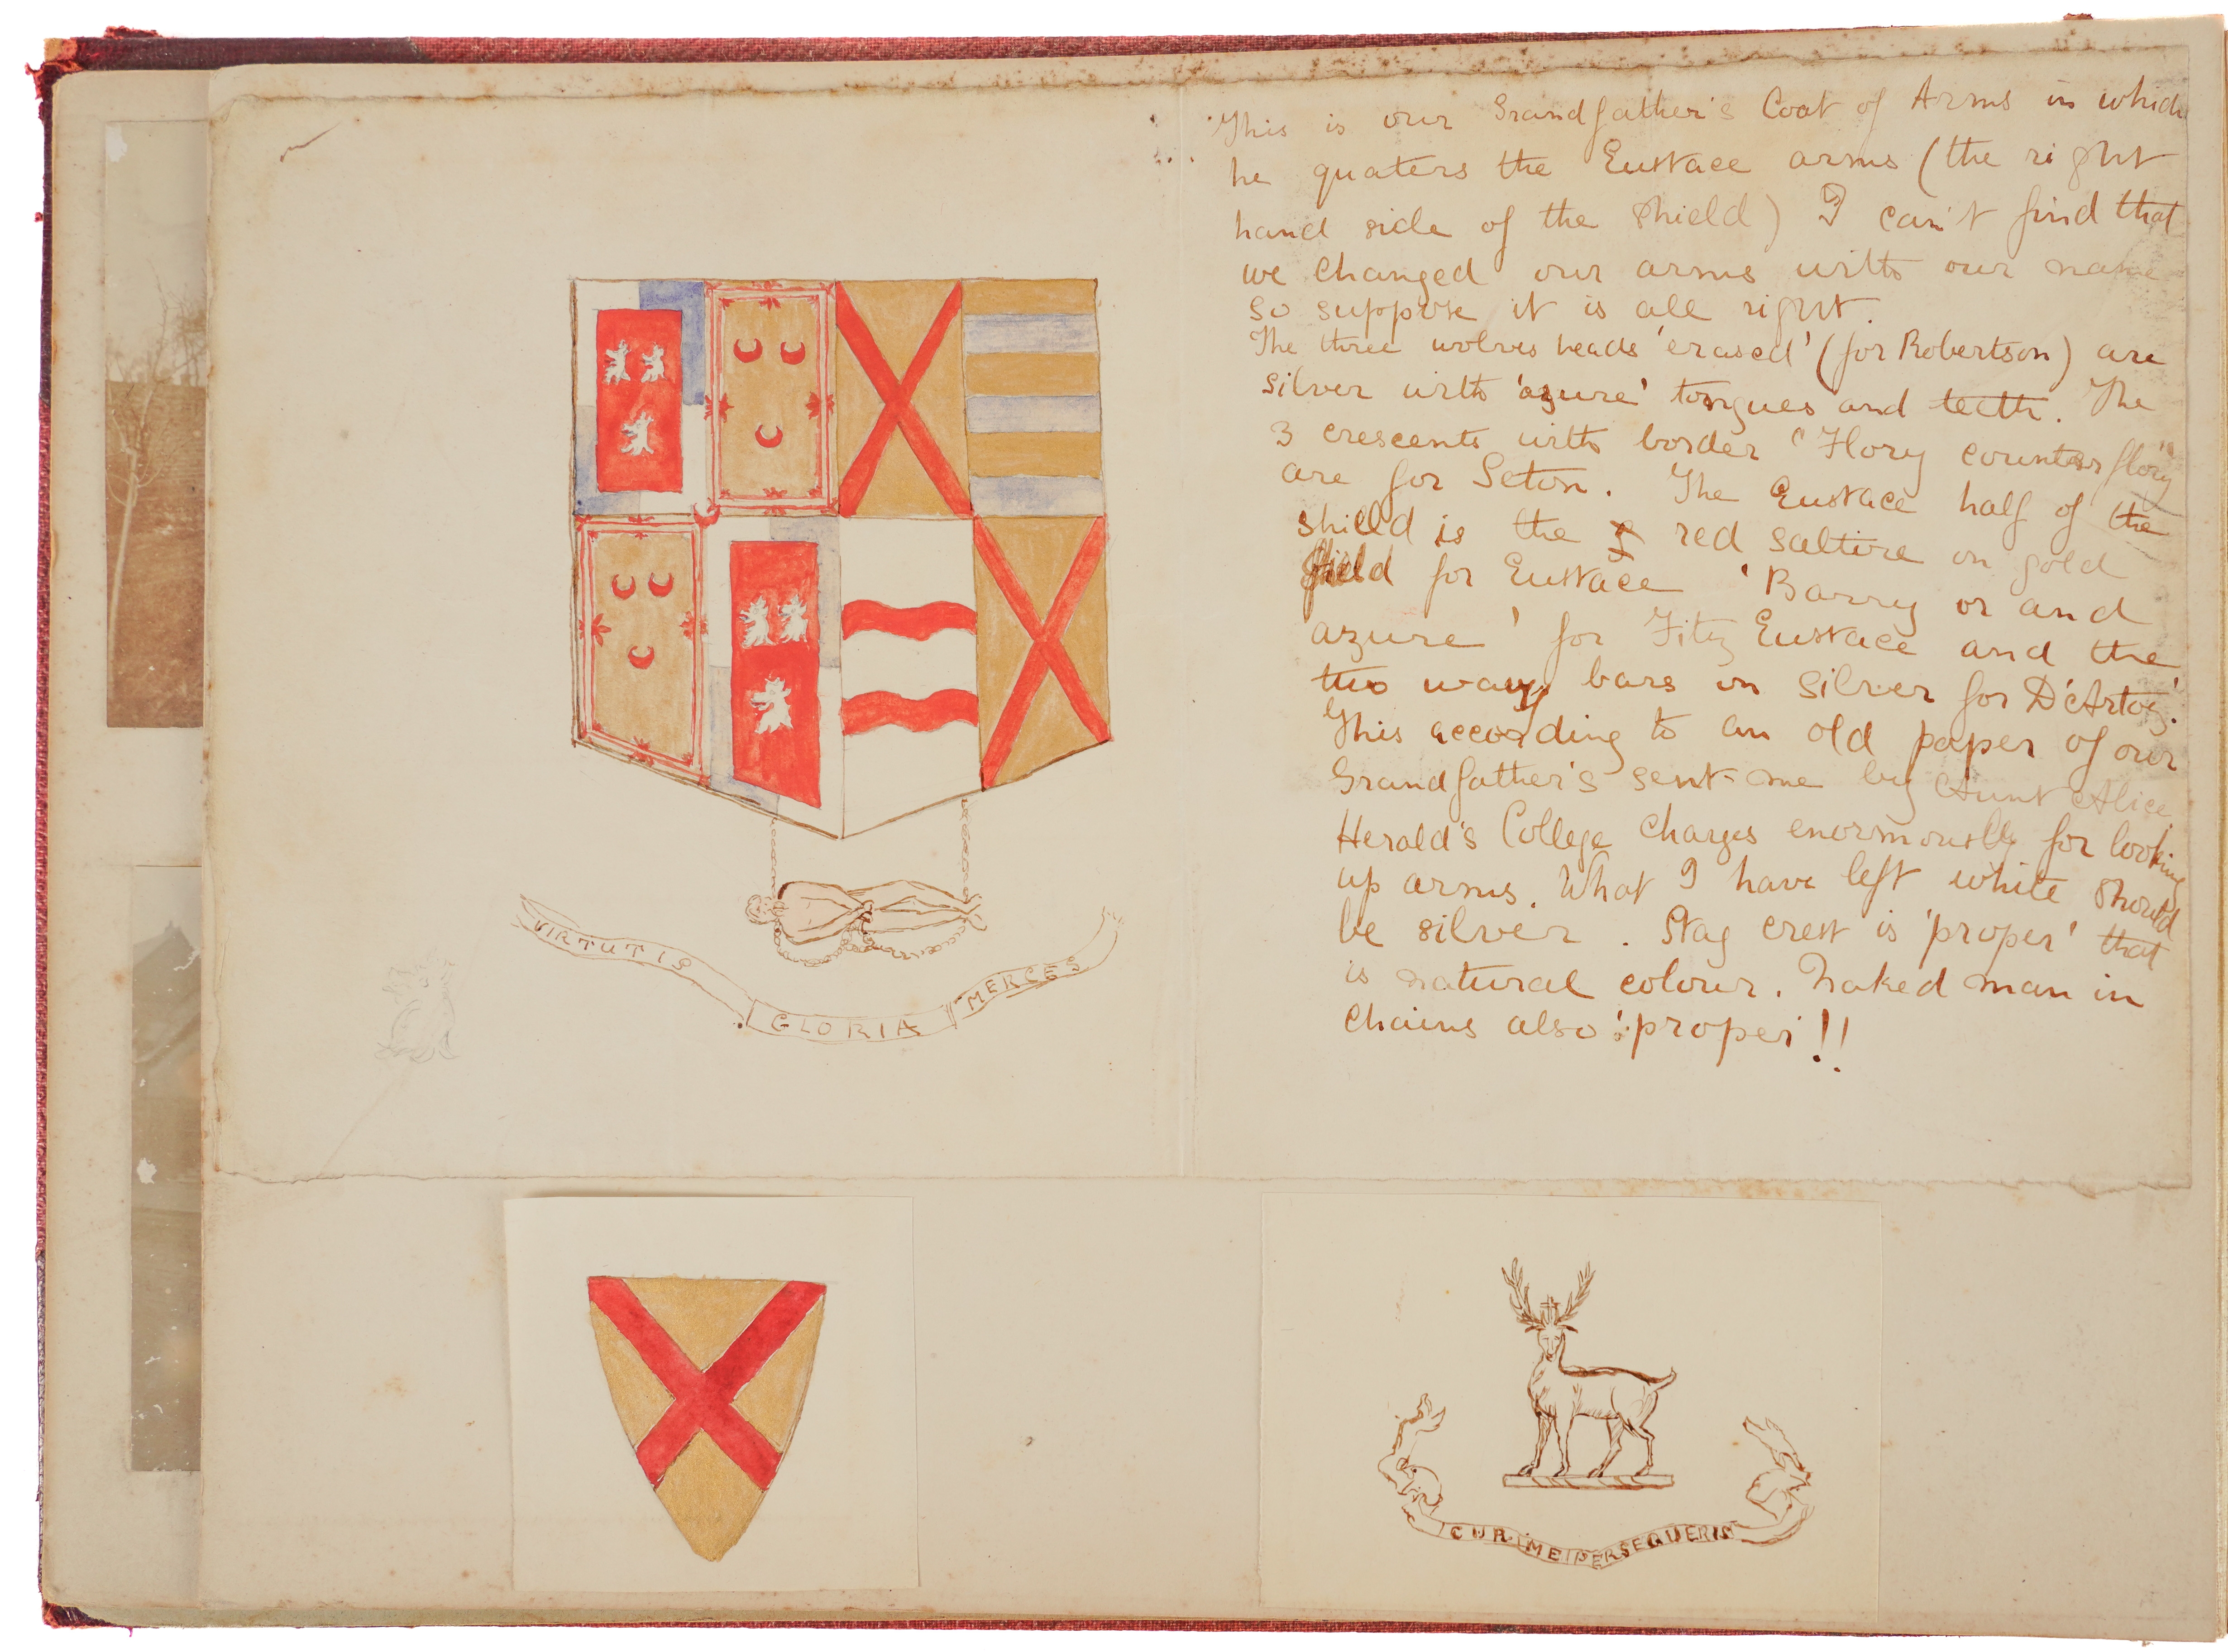 VIRTUTIS GLORIA MERCES
This is our Grandfather's Coat of Arms in which
he quaters the Eustace arms (the right
hand side of the shield) I can't find that
we changed our arms with our name
so suppose it is all right.
The three wolves heads 'erased' (for Robertson) are
silver with 'azure' tongues and teeth. The
3 crescents with border "Flory counter flory"
are for Seton. The Eustace half of the
shield is the red saltire on gold
field for Eustace 'Barry or and
azure' for Fitz Eustace and the
two wavy bars on silver for D'Artois.
This according to an old paper of our
Grandfather's sent me by Aunt Alice.
Herald's College charges enormously for looking
up arms. What I have left white should
be silver. Stag crest is 'proper' that
is natural colour. Naked man in
chains also 'proper'!!
CUR ME PERSEQUERIS